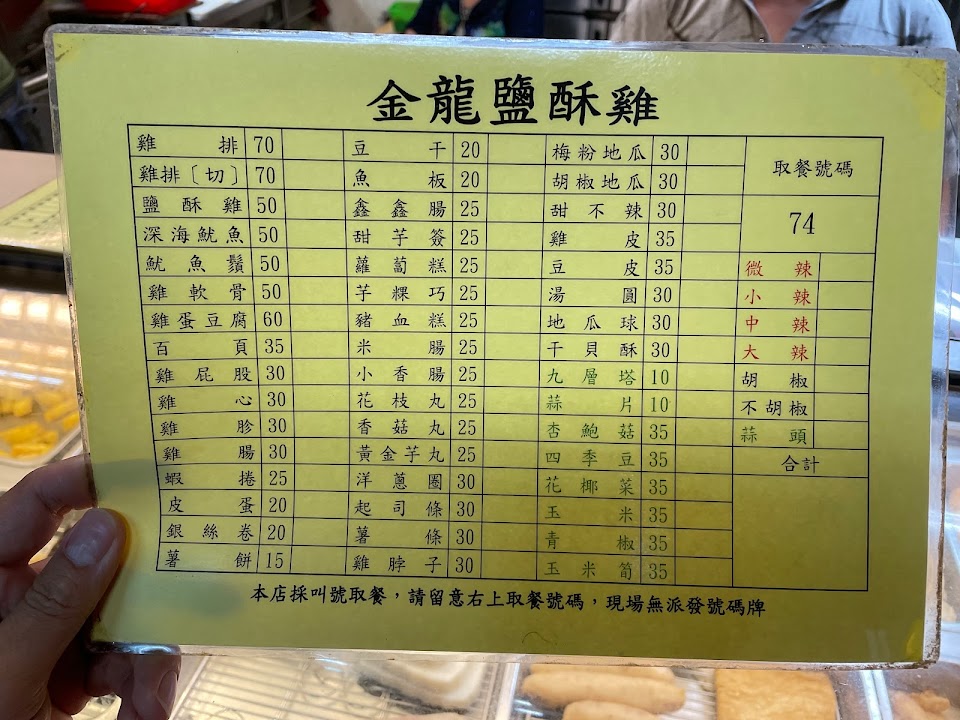 金龍鹽酥雞
雞排 70 豆干 20 梅粉地瓜 30 取餐號碼
雞排〔切〕 70 魚板 20 胡椒地瓜 30
鹽酥雞 50 鑫鑫腸 25 甜不辣 30 74
深海魷魚 50 甜芋簽 25 雞皮 35
魷魚鬚 50 蘿蔔糕 25 豆皮 35 微辣
雞軟骨 50 芋粿巧 25 湯圓 30 小辣
雞蛋豆腐 60 豬血糕 25 地瓜球 30 中辣
百頁 35 米腸 25 干貝酥 30 大辣
雞屁股 30 小香腸 25 九層塔 10 胡椒
雞心 30 花枝丸 25 蒜片 10 不胡椒
雞胗 30 香菇丸 25 杏鮑菇 35 蒜頭
雞腸 30 黃金芋丸 25 四季豆 35 合計
蝦捲 25 洋蔥圈 30 花椰菜 35
皮蛋 20 起司條 30 玉米 35
銀絲卷 20 薯條 30 青椒 35
薯餅 15 雞脖子 30 玉米筍 35
本店採叫號取餐，請留意右上取餐號碼，現場無派發號碼牌